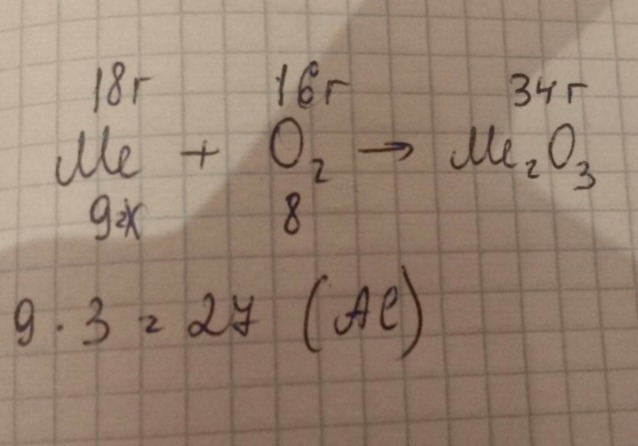 18г 16г 34г
Me + O₂ → Me₂O₃
9=x 8
9 · 3 = 27 (Al)